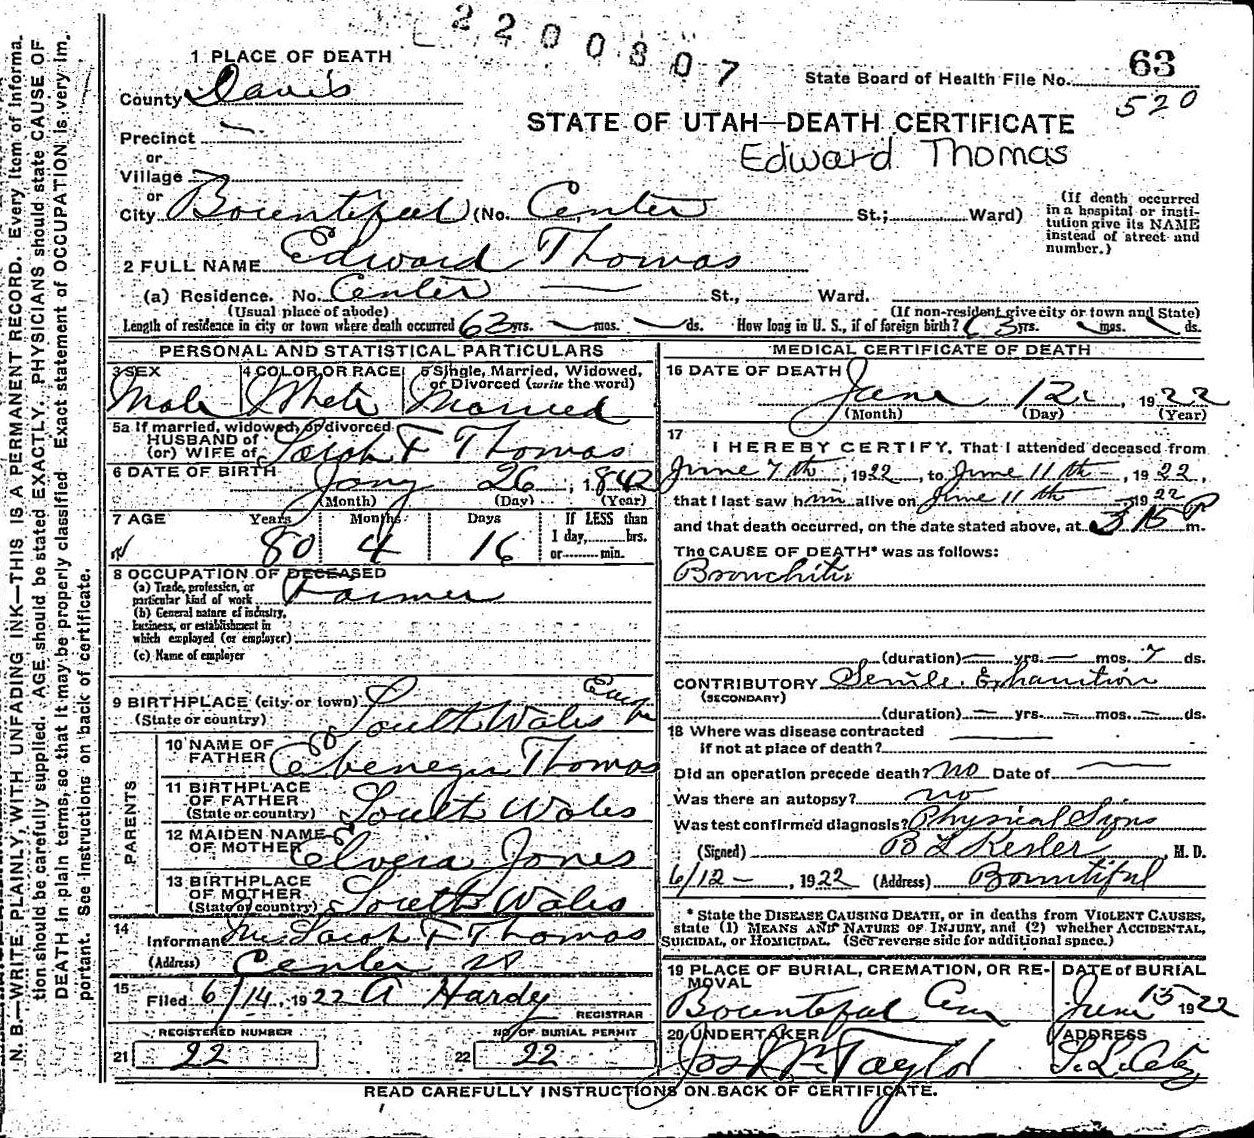 2200807
1 PLACE OF DEATH
State Board of Health File No. 63
County Davis
520
STATE OF UTAH—DEATH CERTIFICATE
Precinct —
Edward Thomas
or
Village
or
City Bountiful (No. Center St.; Ward)
(If death occurred in a hospital or institution give its NAME instead of street and number.)
2 FULL NAME Edward Thomas
(a) Residence. No. Center — St., Ward.
(Usual place of abode) (If non-resident give city or town and State)
Length of residence in city or town where death occurred 63 yrs. — mos. — ds. How long in U. S., if of foreign birth? 63 yrs. — mos. — ds.
PERSONAL AND STATISTICAL PARTICULARS
3 SEX Male
4 COLOR OR RACE White
5 Single, Married, Widowed, or Divorced (write the word) Married
5a If married, widowed, or divorced
HUSBAND of
(or) WIFE of Sarah F Thomas
6 DATE OF BIRTH Jany 26, 1842
(Month) (Day) (Year)
7 AGE Years Months Days If LESS than
80 4 16 1 day, hrs.
or min.
8 OCCUPATION OF DECEASED
(a) Trade, profession, or
particular kind of work Farmer
(b) General nature of industry,
business, or establishment in
which employed (or employer)
(c) Name of employer
9 BIRTHPLACE (city or town)
(State or country) South Wales
PARENTS
10 NAME OF
FATHER Ebenezer Thomas
11 BIRTHPLACE
OF FATHER
(State or country) South Wales
12 MAIDEN NAME
OF MOTHER Elvera Jones
13 BIRTHPLACE
OF MOTHER
(State or country) South Wales
14
Informant Mrs Sarah F Thomas
(Address) Center St
15
Filed 6/14, 1922 A Hardy
REGISTRAR
REGISTERED NUMBER NO. OF BURIAL PERMIT
21 22 22 22
MEDICAL CERTIFICATE OF DEATH
16 DATE OF DEATH June 12, 1922
(Month) (Day) (Year)
17
I HEREBY CERTIFY, That I attended deceased from
June 7th, 1922, to June 11th, 1922,
that I last saw him alive on June 11th 1922
and that death occurred, on the date stated above, at 3 15 P m.
The CAUSE OF DEATH* was as follows:
Bronchitis
(duration) — yrs. — mos. 7 ds.
CONTRIBUTORY Senile Exhaustion
(SECONDARY)
(duration) — yrs. — mos. — ds.
18 Where was disease contracted
if not at place of death?
Did an operation precede death? no Date of —
Was there an autopsy? no
Was test confirmed diagnosis? Physical Signs
(Signed) B L Kesler, M. D.
6/12 —, 1922 (Address) Bountiful
* State the DISEASE CAUSING DEATH, or in deaths from VIOLENT CAUSES,
state (1) MEANS AND NATURE OF INJURY, and (2) whether ACCIDENTAL,
SUICIDAL, or HOMICIDAL. (See reverse side for additional space.)
19 PLACE OF BURIAL, CREMATION, OR REMOVAL
Bountiful Cem
DATE of BURIAL
June 15 1922
20 UNDERTAKER
Taylor
ADDRESS
S. L. City
READ CAREFULLY INSTRUCTIONS ON BACK OF CERTIFICATE.
N. B.—WRITE PLAINLY, WITH UNFADING INK—THIS IS A PERMANENT RECORD. Every item of information should be carefully supplied. AGE should be stated EXACTLY. PHYSICIANS should state CAUSE OF DEATH in plain terms, so that it may be properly classified. Exact statement of OCCUPATION is very important. See instructions on back of certificate.